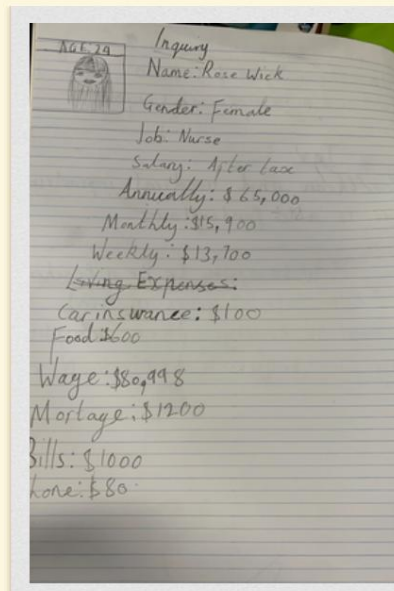 AGE 24
Inquiry
Name: Rose Wick
Gender: Female
Job: Nurse
Salary: After tax
Annually: $65,000
Monthly: $15,900
Weekly: $13,700
Living Expenses:
Car insurance: $100
Food: $600
Wage: $80,998
Mortage: $1200
Bills: $1000
hone: $80